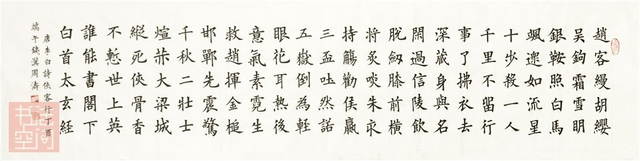 趙客縵胡纓
吳鉤霜雪明
銀鞍照白馬
颯遝如流星
十步殺一人
千里不留行
事了拂衣去
深藏身與名
閑過信陵飲
脫劍膝前橫
將炙啖朱亥
持觴勸侯嬴
三盃吐然諾
五嶽倒為輕
眼花耳熱後
意氣素霓生
救趙揮金槌
邯鄲先震驚
千秋二壯士
煊赫大梁城
縱死俠骨香
不慙世上英
誰能書閣下
白首太玄經
唐李白詩俠客行丁酉
端午 周濤